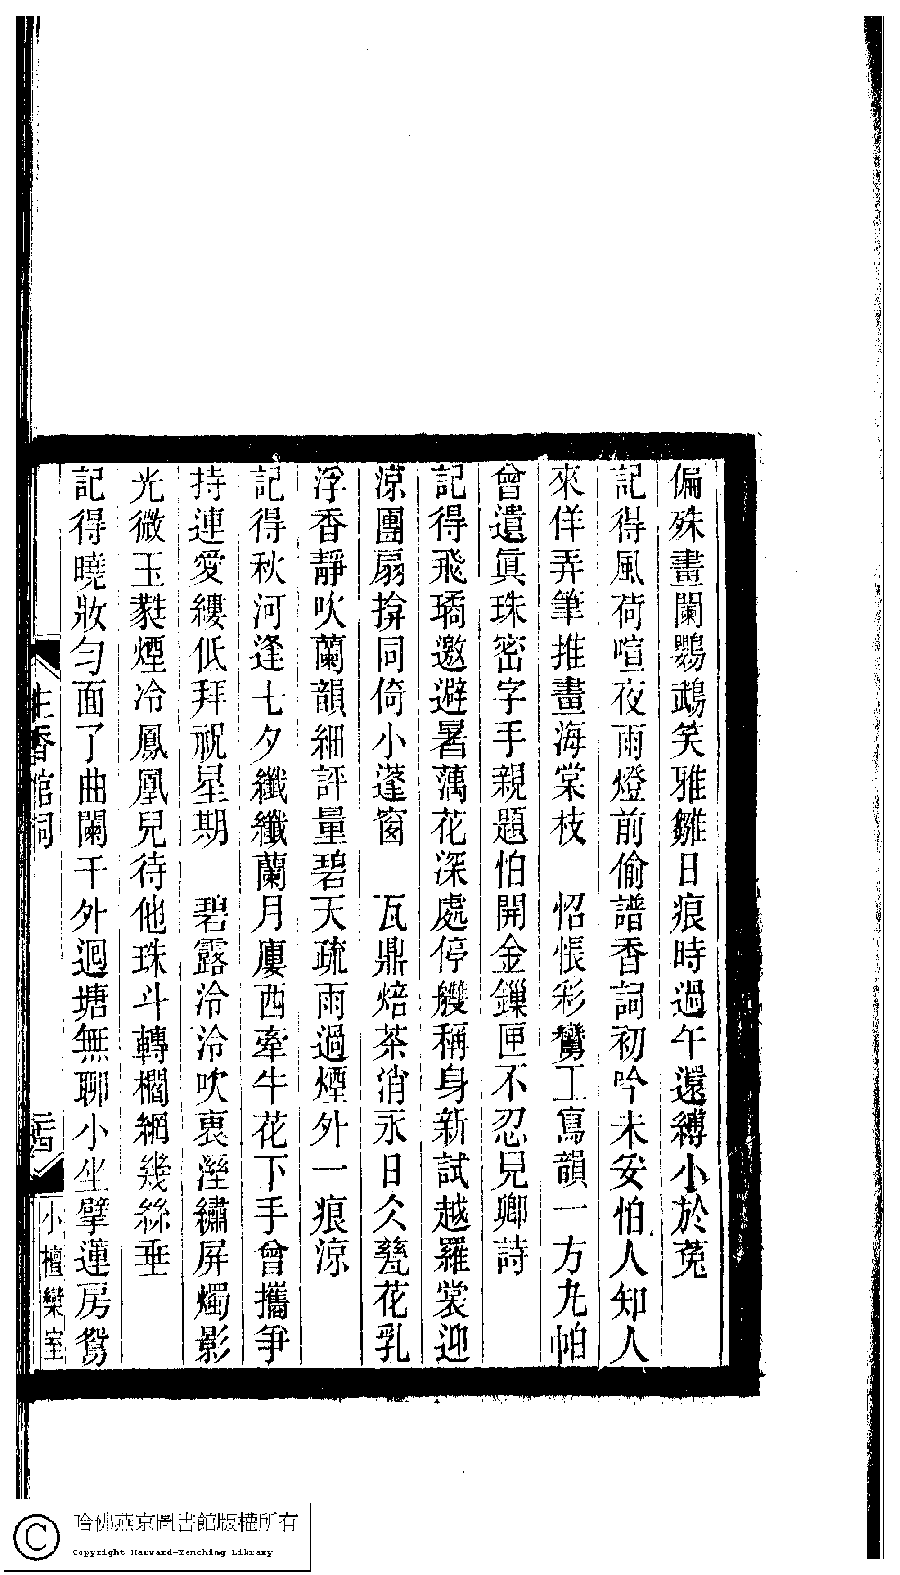 偏殊畫闌鸚鵡笑雅雛日痕時過午還縛小於菟
記得風荷喧夜雨燈前偷譜香詞初吟未安怕人知人
來佯弄筆推畫海棠枝　怊悵彩鸞工寫韻一方九帕
曾遺眞珠密字手親題怕開金鏁匣不忍見卿詩
記得飛璚邀避暑藕花深處停艭稱身新試越羅裳迎
涼團扇揜同倚小蓬窗　瓦鼎焙茶消永日久甆花乳
浮香靜吹蘭韻細評量碧天疏雨過煙外一痕涼
記得秋河逢七夕纖纖蘭月廔西牽牛花下手曾攜爭
持連愛縷低拜祝星期　碧露泠泠吹裏溼繡屏燭影
光微玉㲪煙冷鳳凰兒待他珠斗轉櫩網幾絲垂
記得曉妝勻面了曲闌干外迴塘無聊小坐擘蓮房鴛
生香館詞
二十四
小檀欒室
哈佛燕京圖書館版權所有
Copyright Harvard-Yenching Library